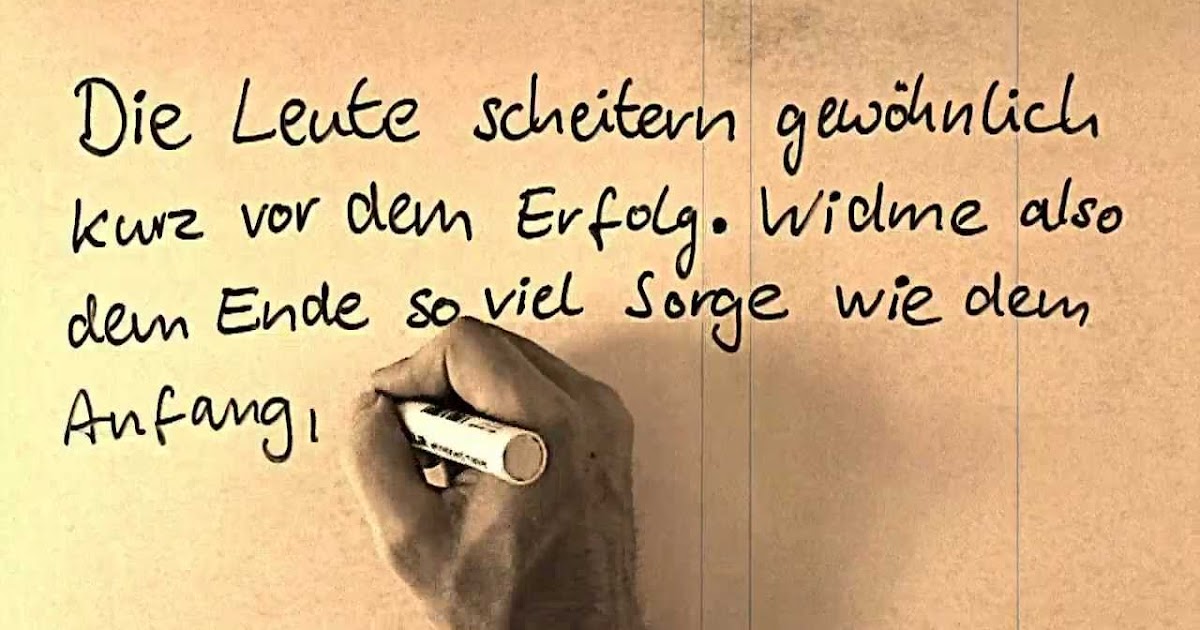 Die Leute scheitern gewöhnlich
kurz vor dem Erfolg. Widme also
dem Ende so viel Sorge wie dem
Anfang,